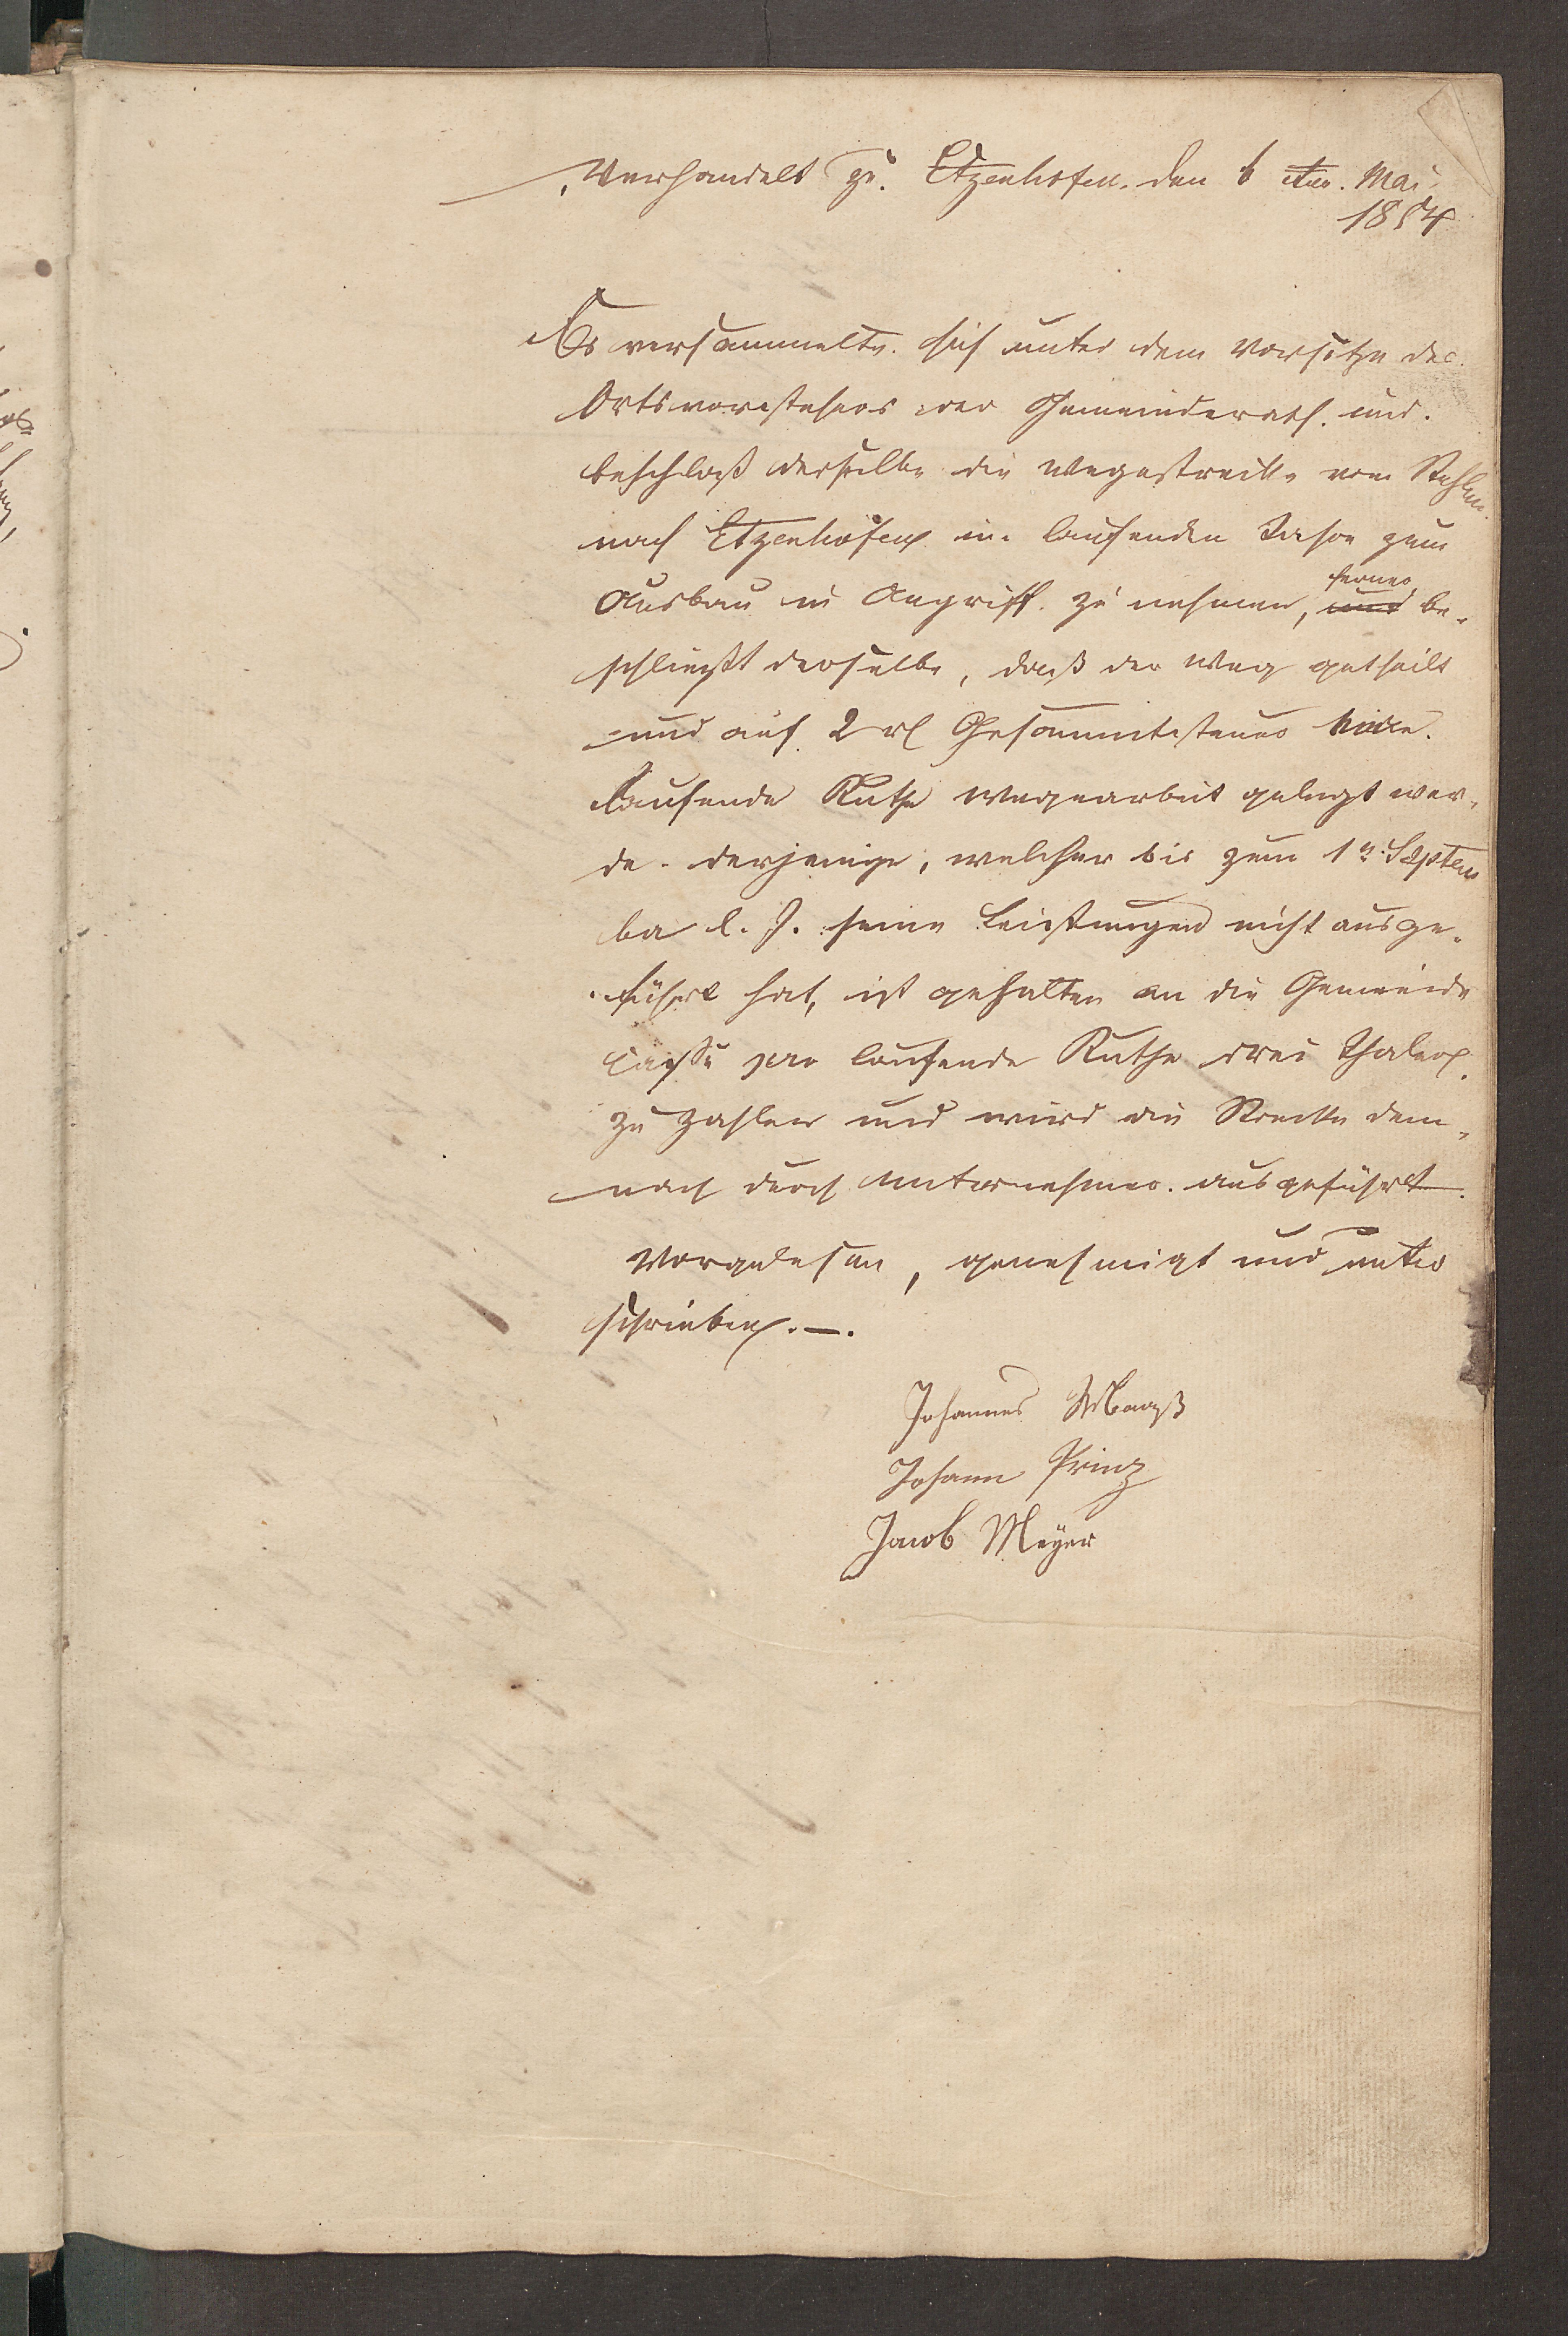 Verhandelt zu Etzenhofen den 6 ten Mai
1854
Es versammelte sich unter dem Vorsitze des
Ortsvorstehers der Gemeinderath und
beschloß derselbe die Wegestrecke vom
nach Etzenhofen im laufenden Jahre zum
ferner
Ausbau in Angriff zu nehmen, und be-
schließt derselbe, daß der Weg getheilt
und auf 2 rl Gesammtsteuer
laufende Ruthe Wegearbeit gelegt wer-
de. derjenige, welcher bis zum 1n Septem
ber l. J. seine Leistungen nicht ausge-
führt hat, ist gehalten an die Gemeinde
Casse pro laufende Ruthe drei Thaler
zu zahlen und wird die Strecke dem-
nach durch Unternehmer ausgeführt.
Vorgelesen, genehmigt und unter
schrieben. —.
Johannes
Johann Prinz
Jacob Meÿer